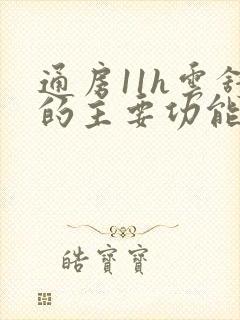 通房11h雲舒
的主要功能
皓寶寶